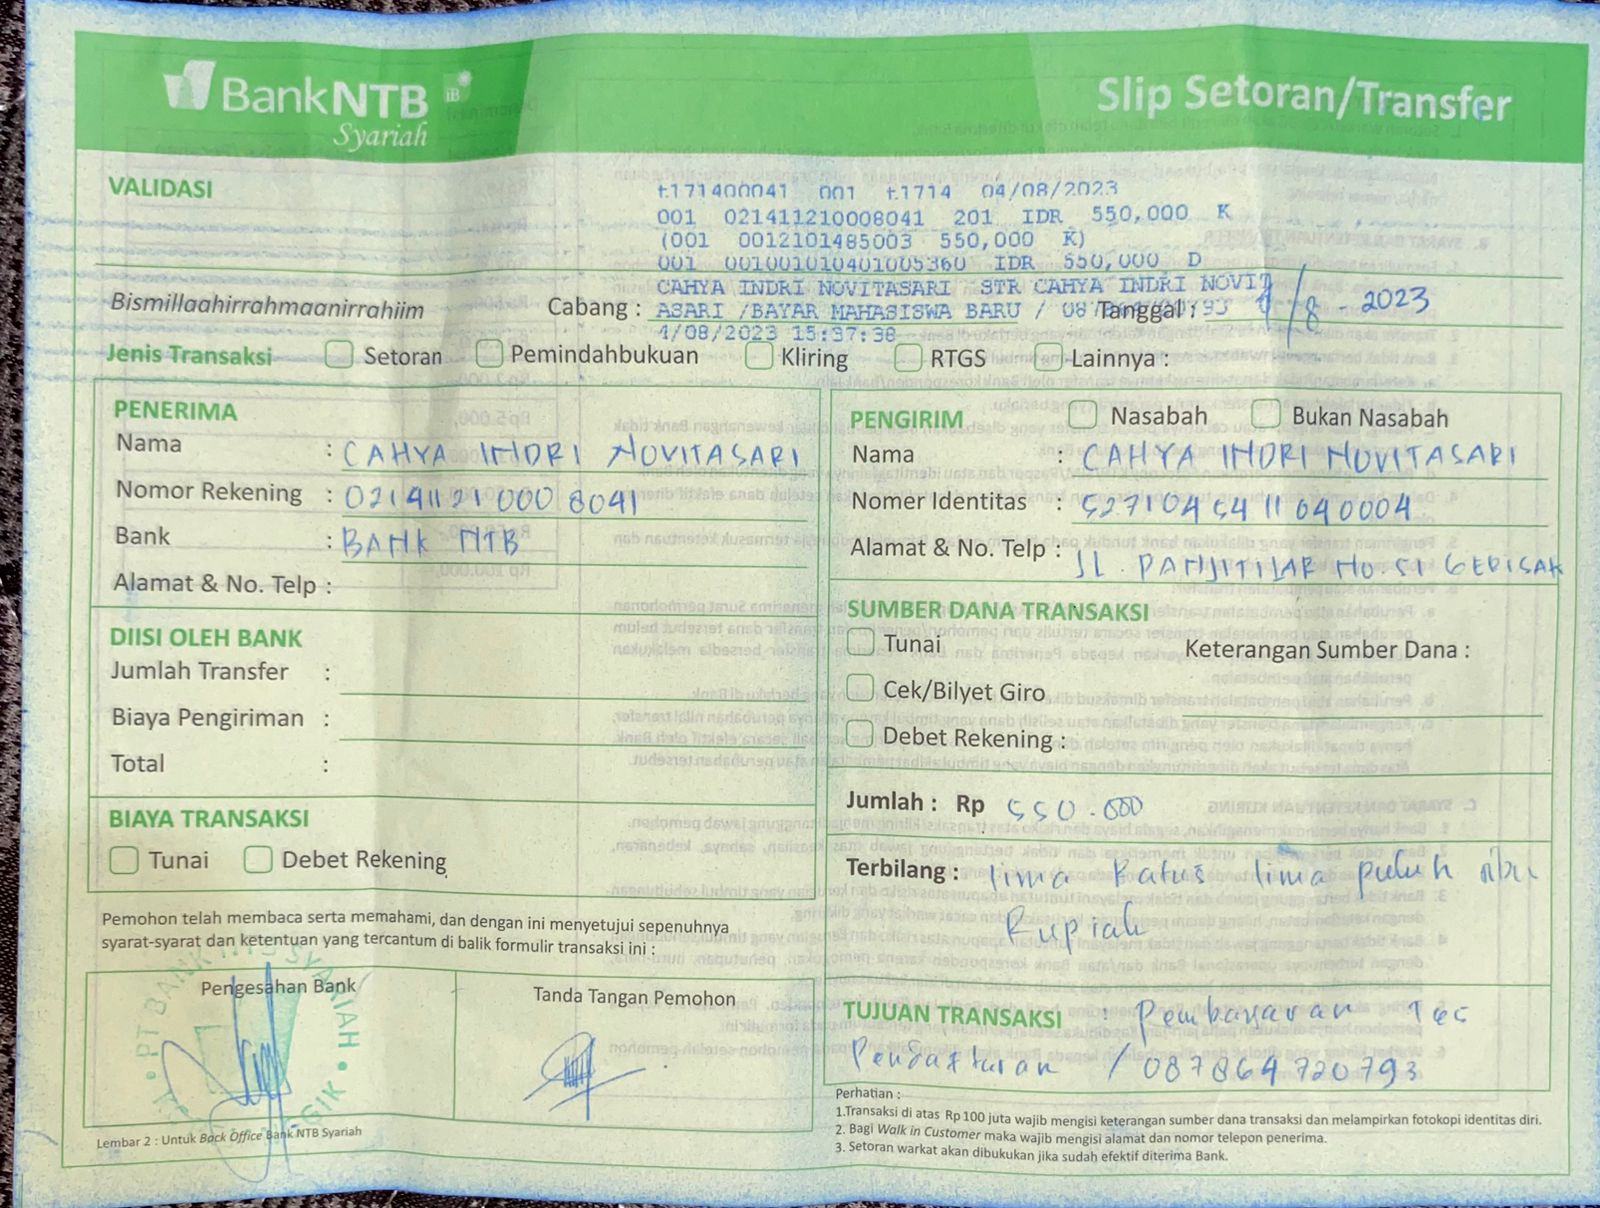 BankNTB iB
Syariah
Slip Setoran/Transfer
VALIDASI
t171400041 001 t1714 04/08/2023
001 021411210008041 201 IDR 550,000 K
(001 0012101485003 550,000 K)
001 001001010401005360 IDR 550,000 D
CAHYA INDRI NOVITASARI STR CAHYA INDRI NOVIT
Bismillaahirrahmaanirrahiim
Cabang : ASARI /BAYAR MAHASISWA BARU /
Tanggal : 4/8 - 2023
4/08/2023 15:37:38
Jenis Transaksi Setoran Pemindahbukuan Kliring RTGS Lainnya :
PENERIMA
Nama : CAHYA INDRI NOVITASARI
Nomor Rekening : 021411210008041
Bank : BANK NTB
Alamat & No. Telp :
PENGIRIM Nasabah Bukan Nasabah
Nama : CAHYA INDRI NOVITASARI
Nomer Identitas : 5271045411040004
Alamat & No. Telp : JL. PANJITILAR NO.51 GERISAK
DIISI OLEH BANK
Jumlah Transfer :
Biaya Pengiriman :
Total :
SUMBER DANA TRANSAKSI
Tunai Keterangan Sumber Dana :
Cek/Bilyet Giro
Debet Rekening :
BIAYA TRANSAKSI
Tunai Debet Rekening
Jumlah : Rp 550.000
Terbilang : lima Ratus lima puluh ribu
Rupiah
Pemohon telah membaca serta memahami, dan dengan ini menyetujui sepenuhnya
syarat-syarat dan ketentuan yang tercantum di balik formulir transaksi ini :
Pengesahan Bank
Tanda Tangan Pemohon
PT BANK NTB SYARIAH
TUJUAN TRANSAKSI : Pembayaran
Pendaftaran / 087864720793
Lembar 2 : Untuk Back Office Bank NTB Syariah
Perhatian :
1.Transaksi di atas Rp100 juta wajib mengisi keterangan sumber dana transaksi dan melampirkan fotokopi identitas diri.
2. Bagi Walk in Customer maka wajib mengisi alamat dan nomor telepon penerima.
3. Setoran warkat akan dibukukan jika sudah efektif diterima Bank.